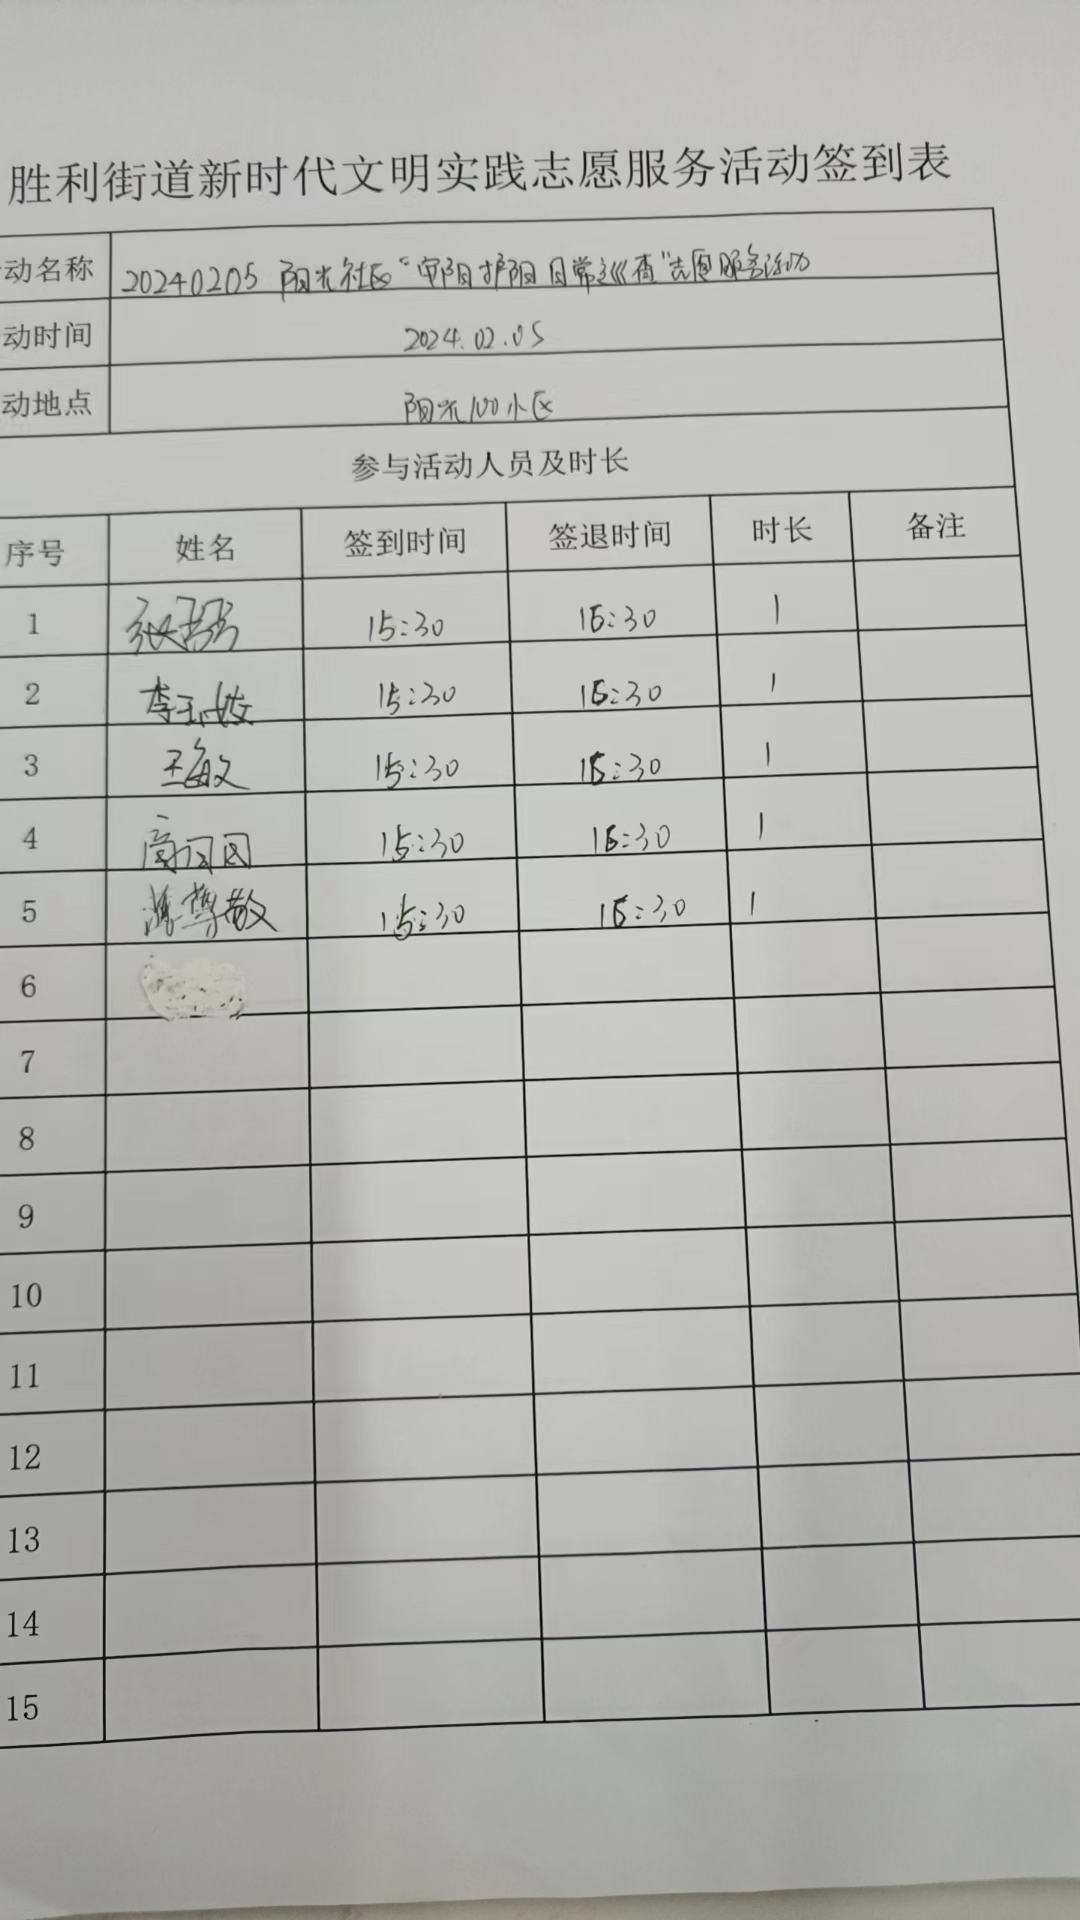 胜利街道新时代文明实践志愿服务活动签到表
动名称 20240205 阳光社区“宇阳护阳日常巡查”志愿服务活动
动时间 2024.02.05
动地点 阳光100小区
参与活动人员及时长
序号 姓名 签到时间 签退时间 时长 备注
1 15:30 16:30 1
2 李玉 15:30 16:30 1
3 王敏 15:30 16:30 1
4 15:30 16:30 1
5 尊敬 15:30 16:30 1
6
7
8
9
10
11
12
13
14
15